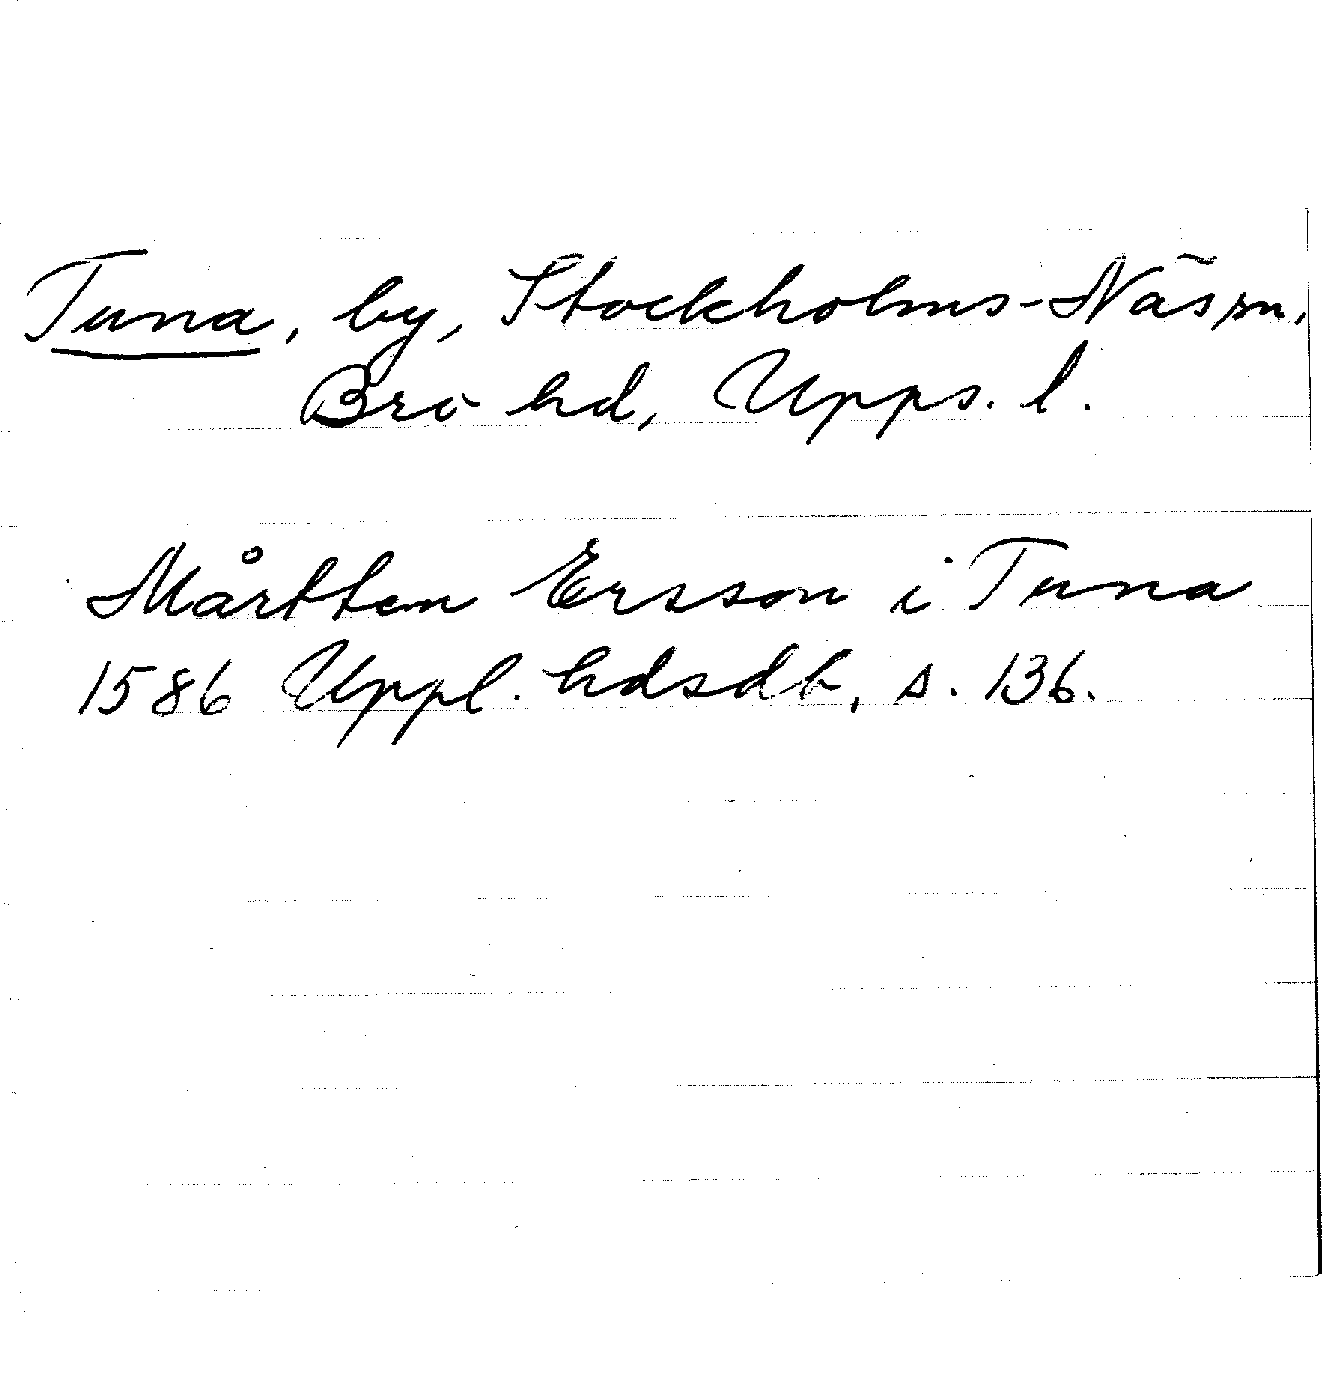 Tuna, by, Stockholms-Näs sn,
Bro hd, Upps. l.
Mårtten Ersson i Tuna
1586 Uppl. hdsdb, s. 136.